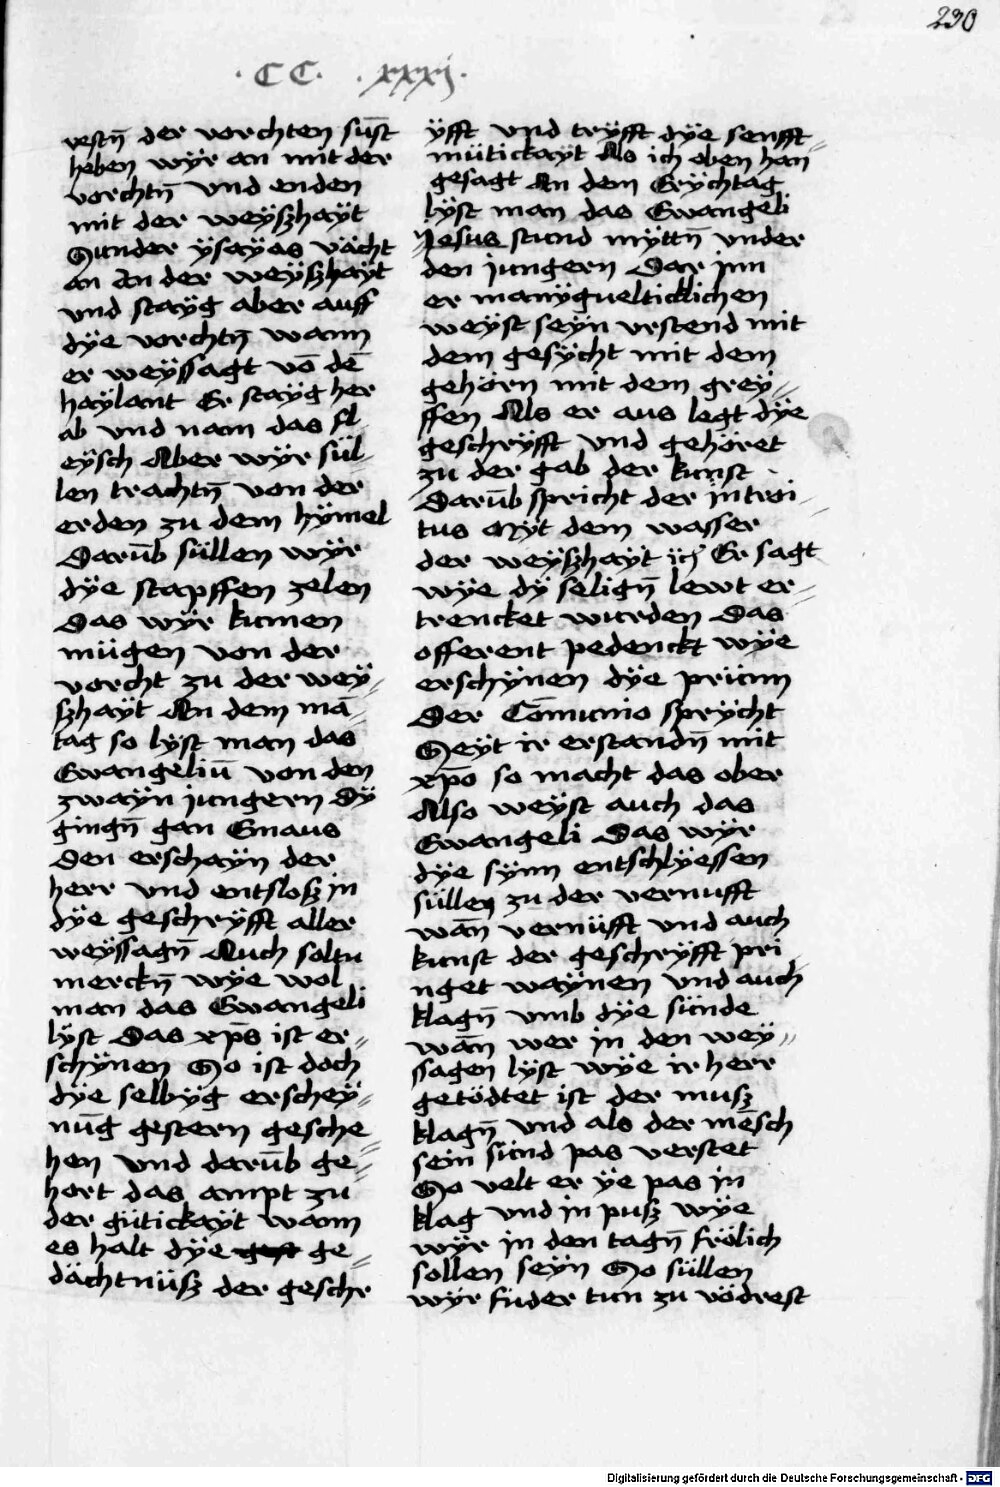 230
· C C · · xxxj ·
vestn̄ der vorchten sūst
heben wÿr an mit der
vorchtn̄ vnd enden
mit der weÿszhaÿt
Sunder ÿsaÿas vächt
an An der weÿszhaÿt
vnd staÿg aber auff
dÿe vorchtn̄ wann
er weÿssagt vō dē
haÿlant Er staÿg her
ab vnd nam das fl
eÿsch Aber wÿr sül-
len trachtn̄ von der
erden zu dem hÿmel
Darūb süllen wÿr
dÿe stapffen zelen
Das wÿr kumen
mügen von der
vorcht zu der weÿ-
szhaÿt An dem mā-
tag so lÿst man das
Ewangeliū von den
zwaÿn jungern dÿ
gingn̄ gan Emaus
Den erschaÿn der
herr vnd entslosz in
dÿe geschrÿfft aller
weÿssagn̄ Auch soltu
merckn̄ wÿe wol
man das Ewangeli
lÿst Das xp̄s ist er-
schÿnen So ist doch
dÿe selbÿg erscheÿ-
nūg gestern gesche-
hen vnd darūb ge-
hort das ampt zu
der gütickaÿt wann
es halt dÿe ge-
dächtnüsz der geschr
ÿfft vnd trÿfft dÿe senfft-
mütickaÿt Als ich oben han
gesagt An dem Erÿchtag
lÿst man das Ewangeli
Jesus stund mÿttn̄ vnder
den jungern Dar inn
er manÿguelticklichen
weÿst seÿn vrstend mit
dem gesÿcht mit dem
gehörn mit dem greÿ-
ffen Als er aus legt dÿe
geschrÿfft vnd gehöret
zu der gab der kunst
Darūb spricht der introi-
tus Mÿt dem wasser
der weÿszhaÿt ic̄ Er sagt
wÿe dÿ selign̄ lewt er-
trencket wurden Das
offerent pedenckt wÿe
erschÿnen dÿe prünn
Der Cōmunio sprÿcht
Seÿt ir erstandn̄ mit
xp̄o so macht das ober
Also weÿst auch das
Ewangeli Das wÿr
dÿe sÿnn entschlÿessen
süllen zu der vernufft
wān vernüfft vnd auch
kunst der geschrÿfft pri
nget waÿnen vnd auch
klagn̄ vmb dÿe sünde
wān wer in den weÿ-
ssagen lÿst wÿe ir herr
getödtet ist der musz
klagn̄ vnd als der mēsch
sein sünd pas verstet
So velt er ÿe pas in
klag vnd in pusz wÿe
wÿr in den tagn̄ frölich
sollen seÿn So süllen
wÿr füder tun zu vödrest
Digitalisierung gefördert durch die Deutsche Forschungsgemeinschaft - DFG